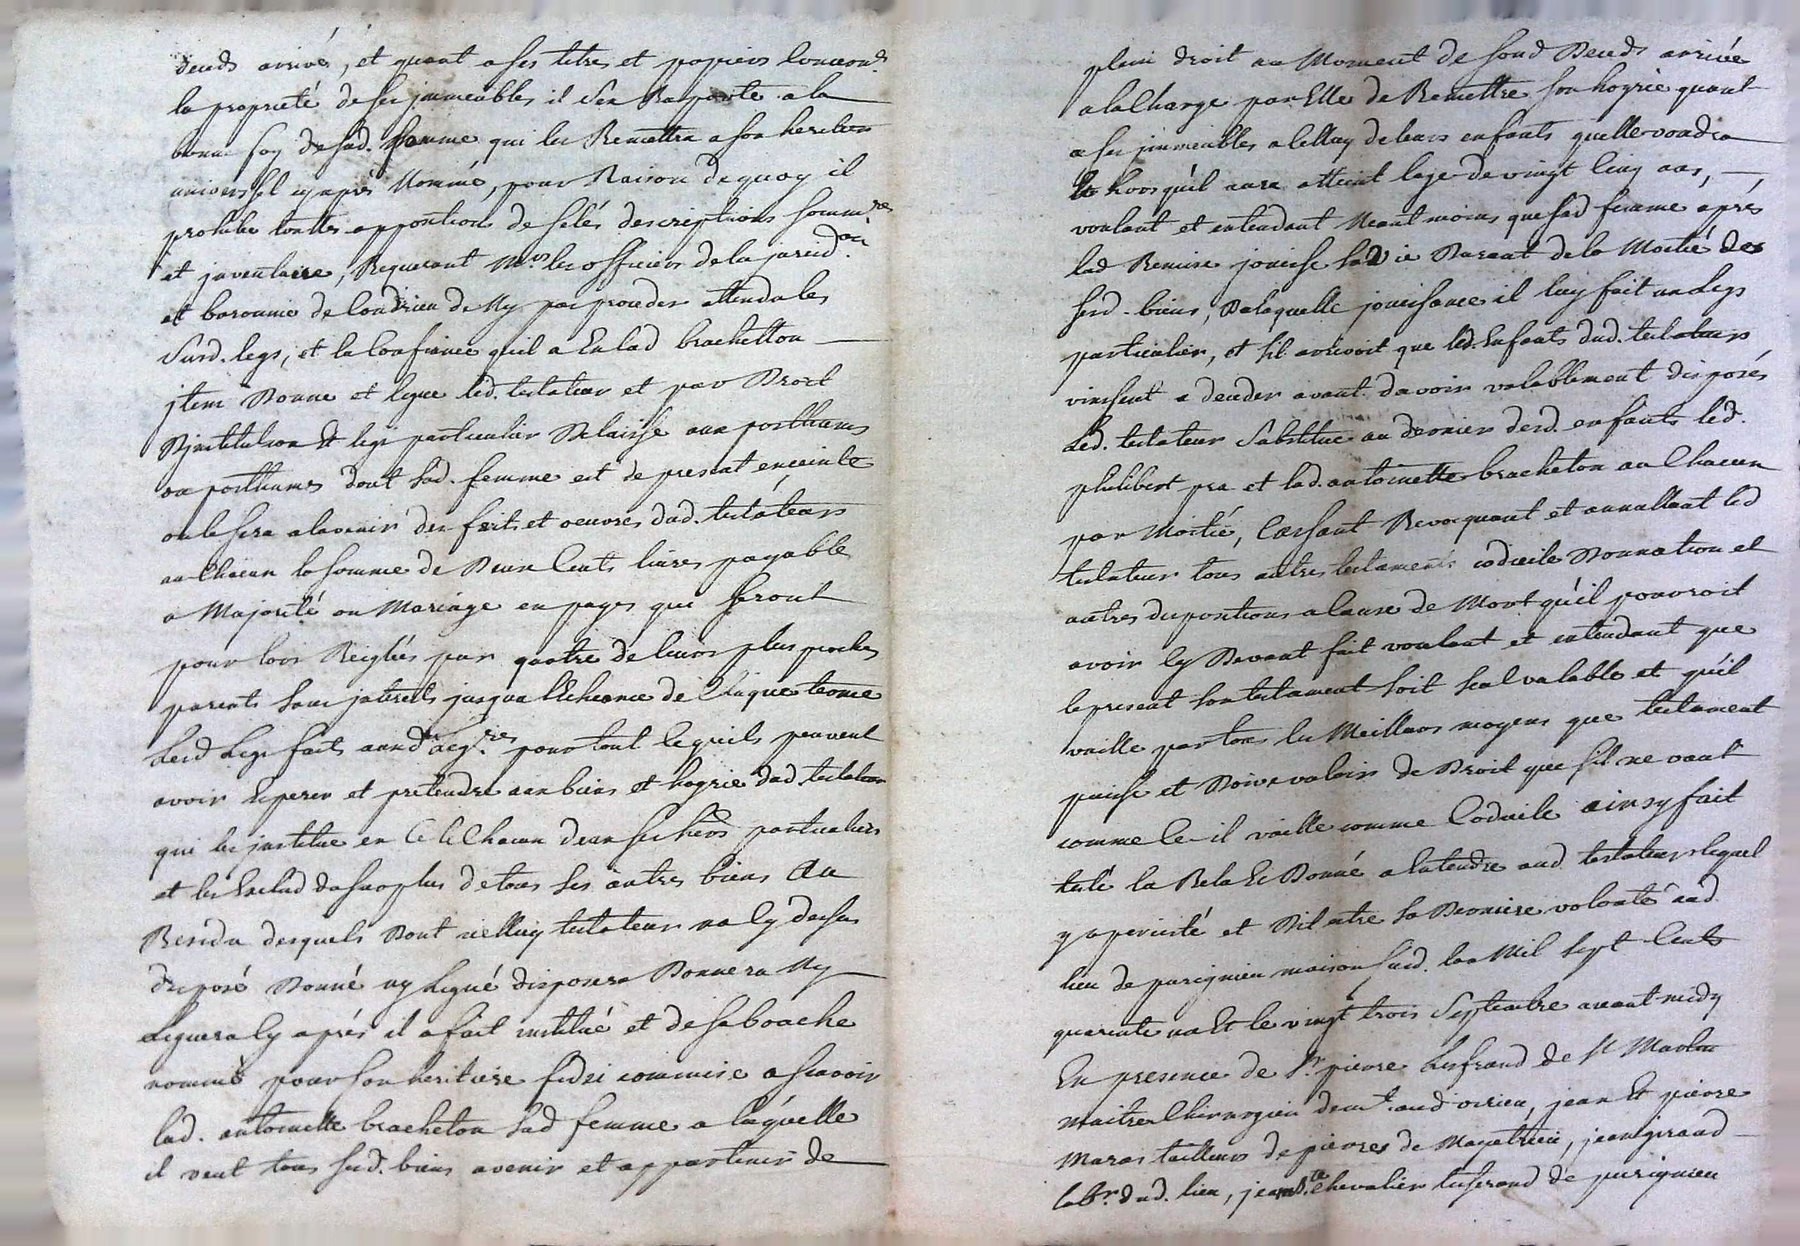 deceds arrivé, et quant a ses titres et papiers concern.ts
la proprieté de ses jmmeubles il s'en Rapporte a la
bonne foy de sad. femme qui les Remettra a son heritier
universel cy aprés Nommé, pour Raison de quoy il
prohibe touttes appositions de selés descriptions somm.res
et jnventaire, Requerant M.rs les officiers de la jurid.on
et baronnie de d'y proceder attendu les
susd. legs, et la Confiance quil a En lad bracheton
jtem Donne et legue led. testateur et par Droit
Djnstitution Et legs particulier Delaisse aux posthumes
ou posthumes dont sad. femme est de present enceinte
ou le sera a lavenir des faits et oeuvres dud. testateur
a Chacun la somme de Deux Cents livres payable
a Majorité ou Mariage en payes que seront
pour lors Reiglées par quatre de leurs plus proches
parents sans jnterets jusqua l'Echeance de Chaque terme
Lesd Legs faits auxd. pour tout ce quils peuvent
avoir Esperer et pretendre aux biens et hoyrie dud. testateur
qui les jnstitue en Ce Chacun deux ses hers particuliers
et les Exclud du surplus de tous ses autres biens Au
Residu desquels Dont icelluy testateur na Cy dessus
disposé Donné ny Legué disposera Donnera Ny
Leguera Cy aprés il a fait institué et de sa bouche
nommé pour son heritiere fidei commise a scavoir
lad. antoinette bracheton sad femme a laquelle
il veut tous sesd. biens avenir et appartenir de
plein droit au Moment de sond Deceds arrivée
a la Charge par Elle de Remettre son hoyrie quant
a ses jmmeubles a Celluy de leurs enfants quelle voudra
lors quil aura atteint lage de vingt Cinq ans,
voulant et entendant Neant moins que sad femme aprés
lad Remise jouisse sa vie Durant de la Moitié de
sesd. biens, De laquelle jouissance il luy fait un Legs
particulier, et s'il arrivoit que led. Enfants dud. testateur
vinssent a deceder avant davoir valablement disposés
Led. testateur Substitue au dernier desd. enfants led.
philibert pra et lad. antoinette bracheton au Chacun
par Moitié, Cassant Revocquant et annullant led
testateur tous autres testaments codicile Donnation et
autres dispositions a Cause de Mort qu'il pourroit
avoir Cy Devant fait voulant et entendant que
le present son testament soit seul valable et qu'il
vaille par tous les Meilleurs moyens que testament
puisse et Doive valoir de Droit que s'il ne vaut
comme Ce il vaille comme Codicile ainsy fait
Donné a Entendre aud testateur lequel
y a persisté et Dit etre sa Derniere volonté aud.
lieu de purignieu maison susd. lan Mil sept Cents
quarente un Et le vingt trois Septembre avant midy
En presence de S.r pierre de S.t Martin
maitre Chirurgien dem.t aud orrieu, jean Et pierre
Maras tailleurs de pierres de, jean giraud
lab.r dud. lieu, jean b.te Chevalier tisserand de purignieu